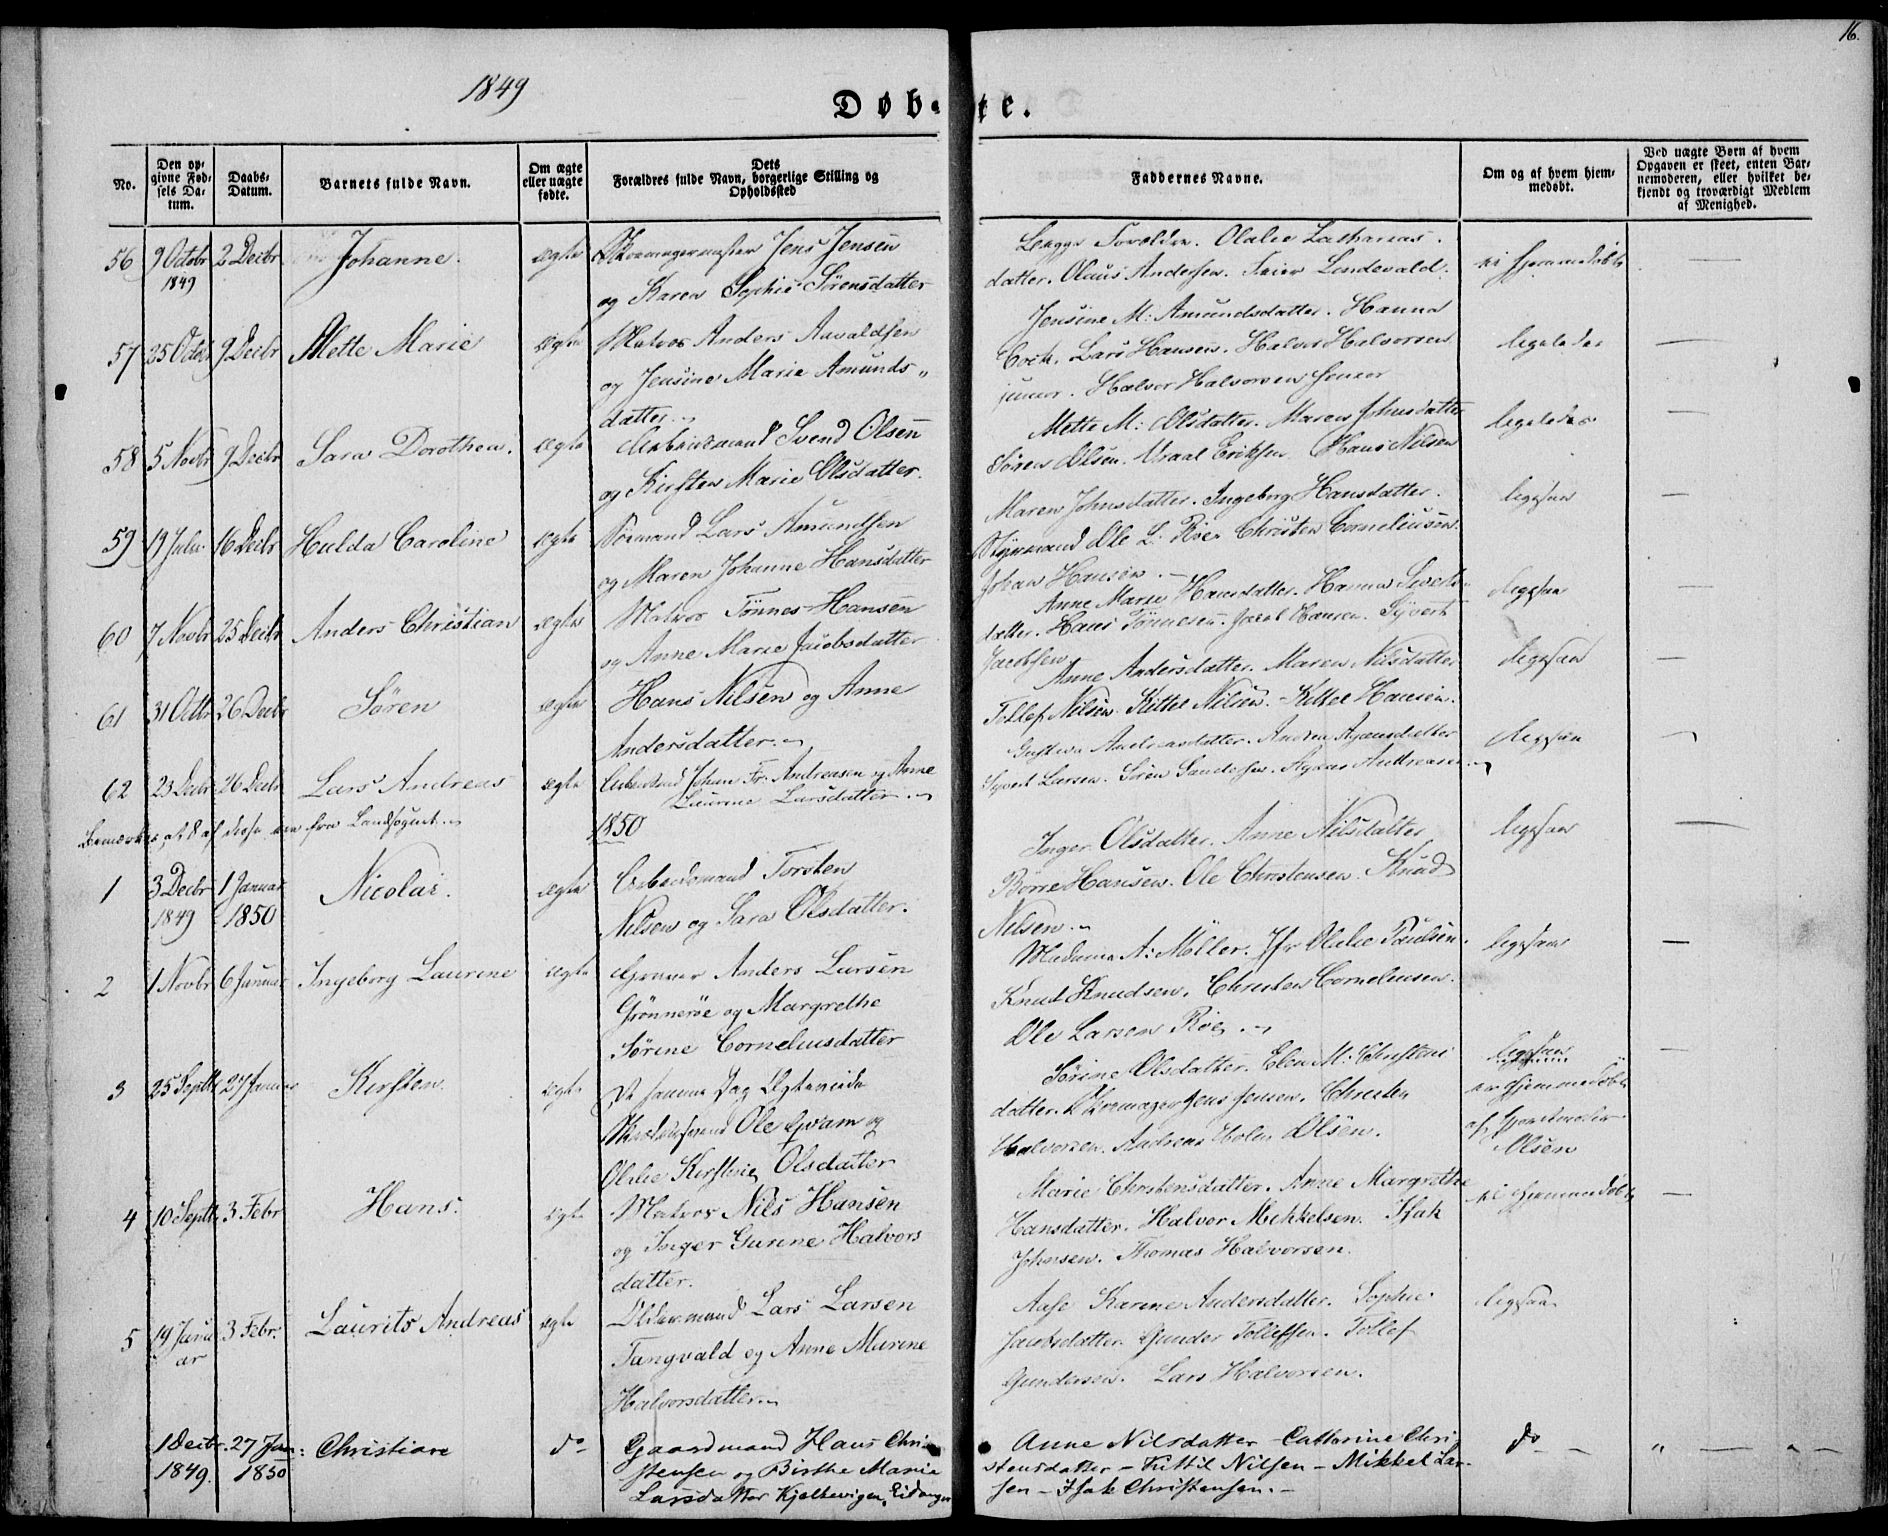 16.
1849
Døb- te.
No.
Den op-
givne Fød-
sels Da-
tum.
Daabs-
Datum.
Barnets fulde Navn.
Om ægte
eller uægte
fødte.
Dets
Forældres fulde Navn, borgerlige Stilling og
Opholdssted
Faddernes Navne.
Om og af hvem hjem-
medøbt.
Ved uægte Børn af hvem
Opgaven er skeet, enten Bar-
nemoderen, eller hvilket be-
kjendt og troværdigt Medlem
af Menighed.
56 9 Octobr 1849 2 Decbr Johanne. ægte Jens Jensen
og Karen Sophie Sørensdatter
Olalie Zacharias-
datter. Olaus Andersen. Lindevald.
ei hjemmedøbt
57 25 Octob 9 Decbr Mette Marie ægte Matros Anders Aavaldsen
og Jensine Marie Amunds-
datter
Jensine M: Amundsdatter. Hanna
Lars Hansen. Halvor Halvorsen
junior. Halvor Halvorsen senior
ligeledes
58 5 Novbr 9 Decbr Sara Dorothea. ægte Arbeidsmand Svend Olsen
og Kirsten Marie Olsdatter.
Mette M: Olsdatter. Maren Johnsdatter
Søren Olsen. Vraal Eriksen. Hans Nilsen
ligeledes
59 19 Julii 16 Decbr Hulda Caroline ægte Sømand Lars Amundsen
og Maren Johanne Hansdatter
Maren Johnsdatter. Ingeborg Hansdatter.
Styrmand Ole L. Roe. Christen Corneliusen.
Johan Hansen.
ligesaa
60 7 Novbr 25 Decbr Anders Christian ægte Matros Tønnes Hansen
og Anne Marie Jacobsdatter
Anne Marie Hansdatter. Hanna Sivert-
datter. Hans Tønnesen. Jacob Hansen. Syvert
Jacobsen
ligesaa
61 31 Octbr 26 Decbr Søren ægte Hans Nilsen og Anne
Andersdatter.
Anne Andersdatter. Maren Nilsdatter
Tollef Nilsen. Kittel Nilsen. Kittel Hansen.
ligesaa
62 23 Decbr 26 Decbr Lars Andreas ægte Arbeidsmand Johan Fr. Andreasen og Anne
Laurine Larsdatter.
Andreasdatter. Andrea
Syvert Larsen. Søren Andreasen.
ligesaa
Bemærkes, at 8 af disse ere fra Landsognet.
1850
1 3 Decbr 1849 1 Januar 1850 Nicolai. ægte Arbeidsmand Torsten
Nilsen og Sara Olsdatter.
Inger Olsdatter. Anne Nilsdatter
Børre Hansen. Ole Christensen. Knud
Nilsen.
ligesaa
2 1 Novbr 6 Januar Ingeborg Laurine ægte Anders Larsen
Grønnerøe og Margrethe
Sørine Corneliusdatter
Madame A: Møller. Jfr Olalie Paulsen.
Knut Knudsen. Christen Corneliusen.
Ole Larsen Roe.
ligesaa
3 25 Septbr 27 Januar Kirsten ægte De samme Dag Ægteviede
Ole Qvam og
Olalie Kirstine Olsdatter
Sørine Olsdatter. Elen M. Christens
datter. Skomager Jens Jensen. Christen
Halvorsen. Andreas Holm Olsen.
ligesaa
er hjemmedøbt
af Jordmoder
Olsen
4 10 Septbr 3 Febr Hans. ægte Matros Nils Hansen
og Inger Gurine Halvors
datter.
Marie Christensdatter. Anne Margrethe
Hansdatter. Halvor Mikkelsen. Isak
Johnsen. Thomas Halvorsen.
ei hjemmedøbt
5 19 Janu
ar 3 Febr. Laurits Andreas ægte Oldermand Lars Larsen
Tangvald og Anne Marine
Halvorsdatter.
Aase Karine Andersdatter. Sophie
Jacobsdatter. Gunder Tollefsen. Tollef
Gundersen. Lars Halvorsen.
ligesaa
1 Decbr. 1849. 27 Jan: 1850 Christiane do Gaardmand Hans Chri-
stensen og Birthe Marie
Larsdatter Kjelkevigen, Eidanger
Anne Nilsdatter - Cathrine Chri-
stensdatter - Kittil Nilsen - Mikkel Lar-
sen - Isak Christensen. -
do